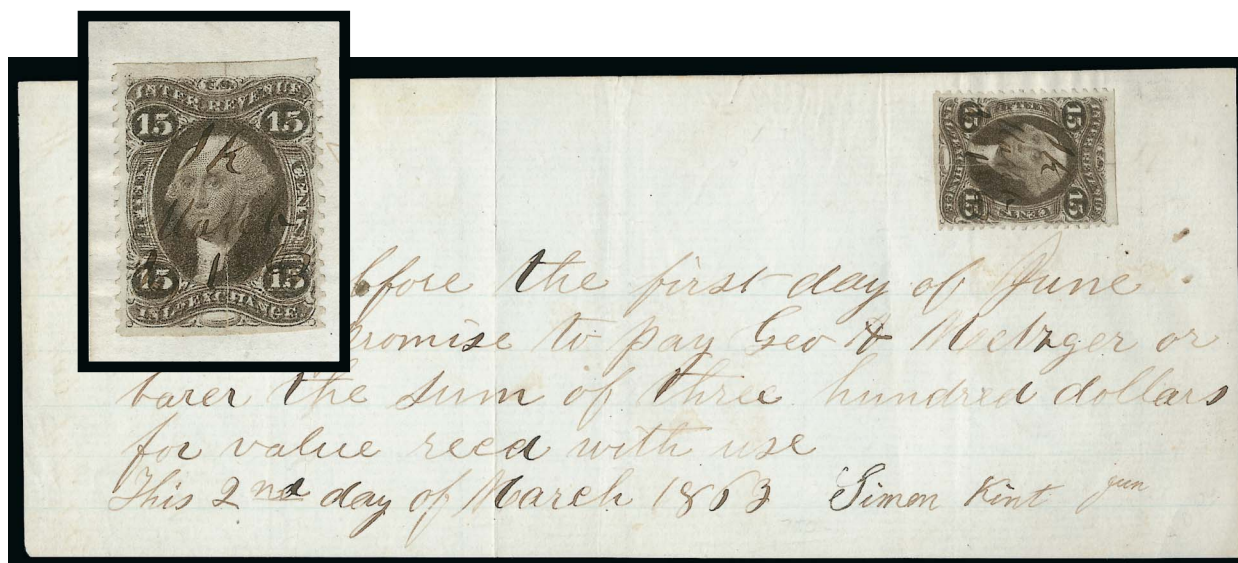 U.S.
INTER. REVENUE
15 15
FIFTEEN CENTS
SK
March
15 1 15
INL. EXCHANGE
bfore the first day of June
promise to pay Geo A Metzger or
barer the sum of three hundred dollars
for value recd with use
This 2nd day of March 1863 Simon Kint jun